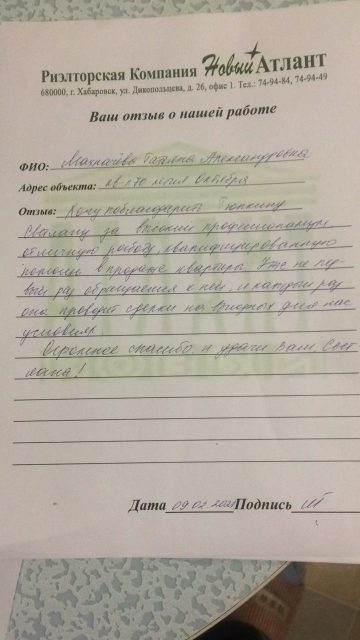 Риэлторская Компания Новый Атлант
680000, г. Хабаровск, ул. Дикопольцева, д. 26, офис 1. Тел.: 74-94-84, 74-94-49
Ваш отзыв о нашей работе
ФИО: Галина Александровна
Адрес объекта: кв-л 70-летия Октября
Отзыв: Хочу поблагодарить Тюпкину
Светлану за высокий професионализм
отличную работу, квалифицированную
помощь в продаже квартиры. Уже не пер
вый раз обращаемся к ней, и каждый раз
она проводит сделки на выгодных для нас
условиях.
Огромнее спасибо и удачи Вам Свет
лана!
Дата 09.02.2021 Подпись